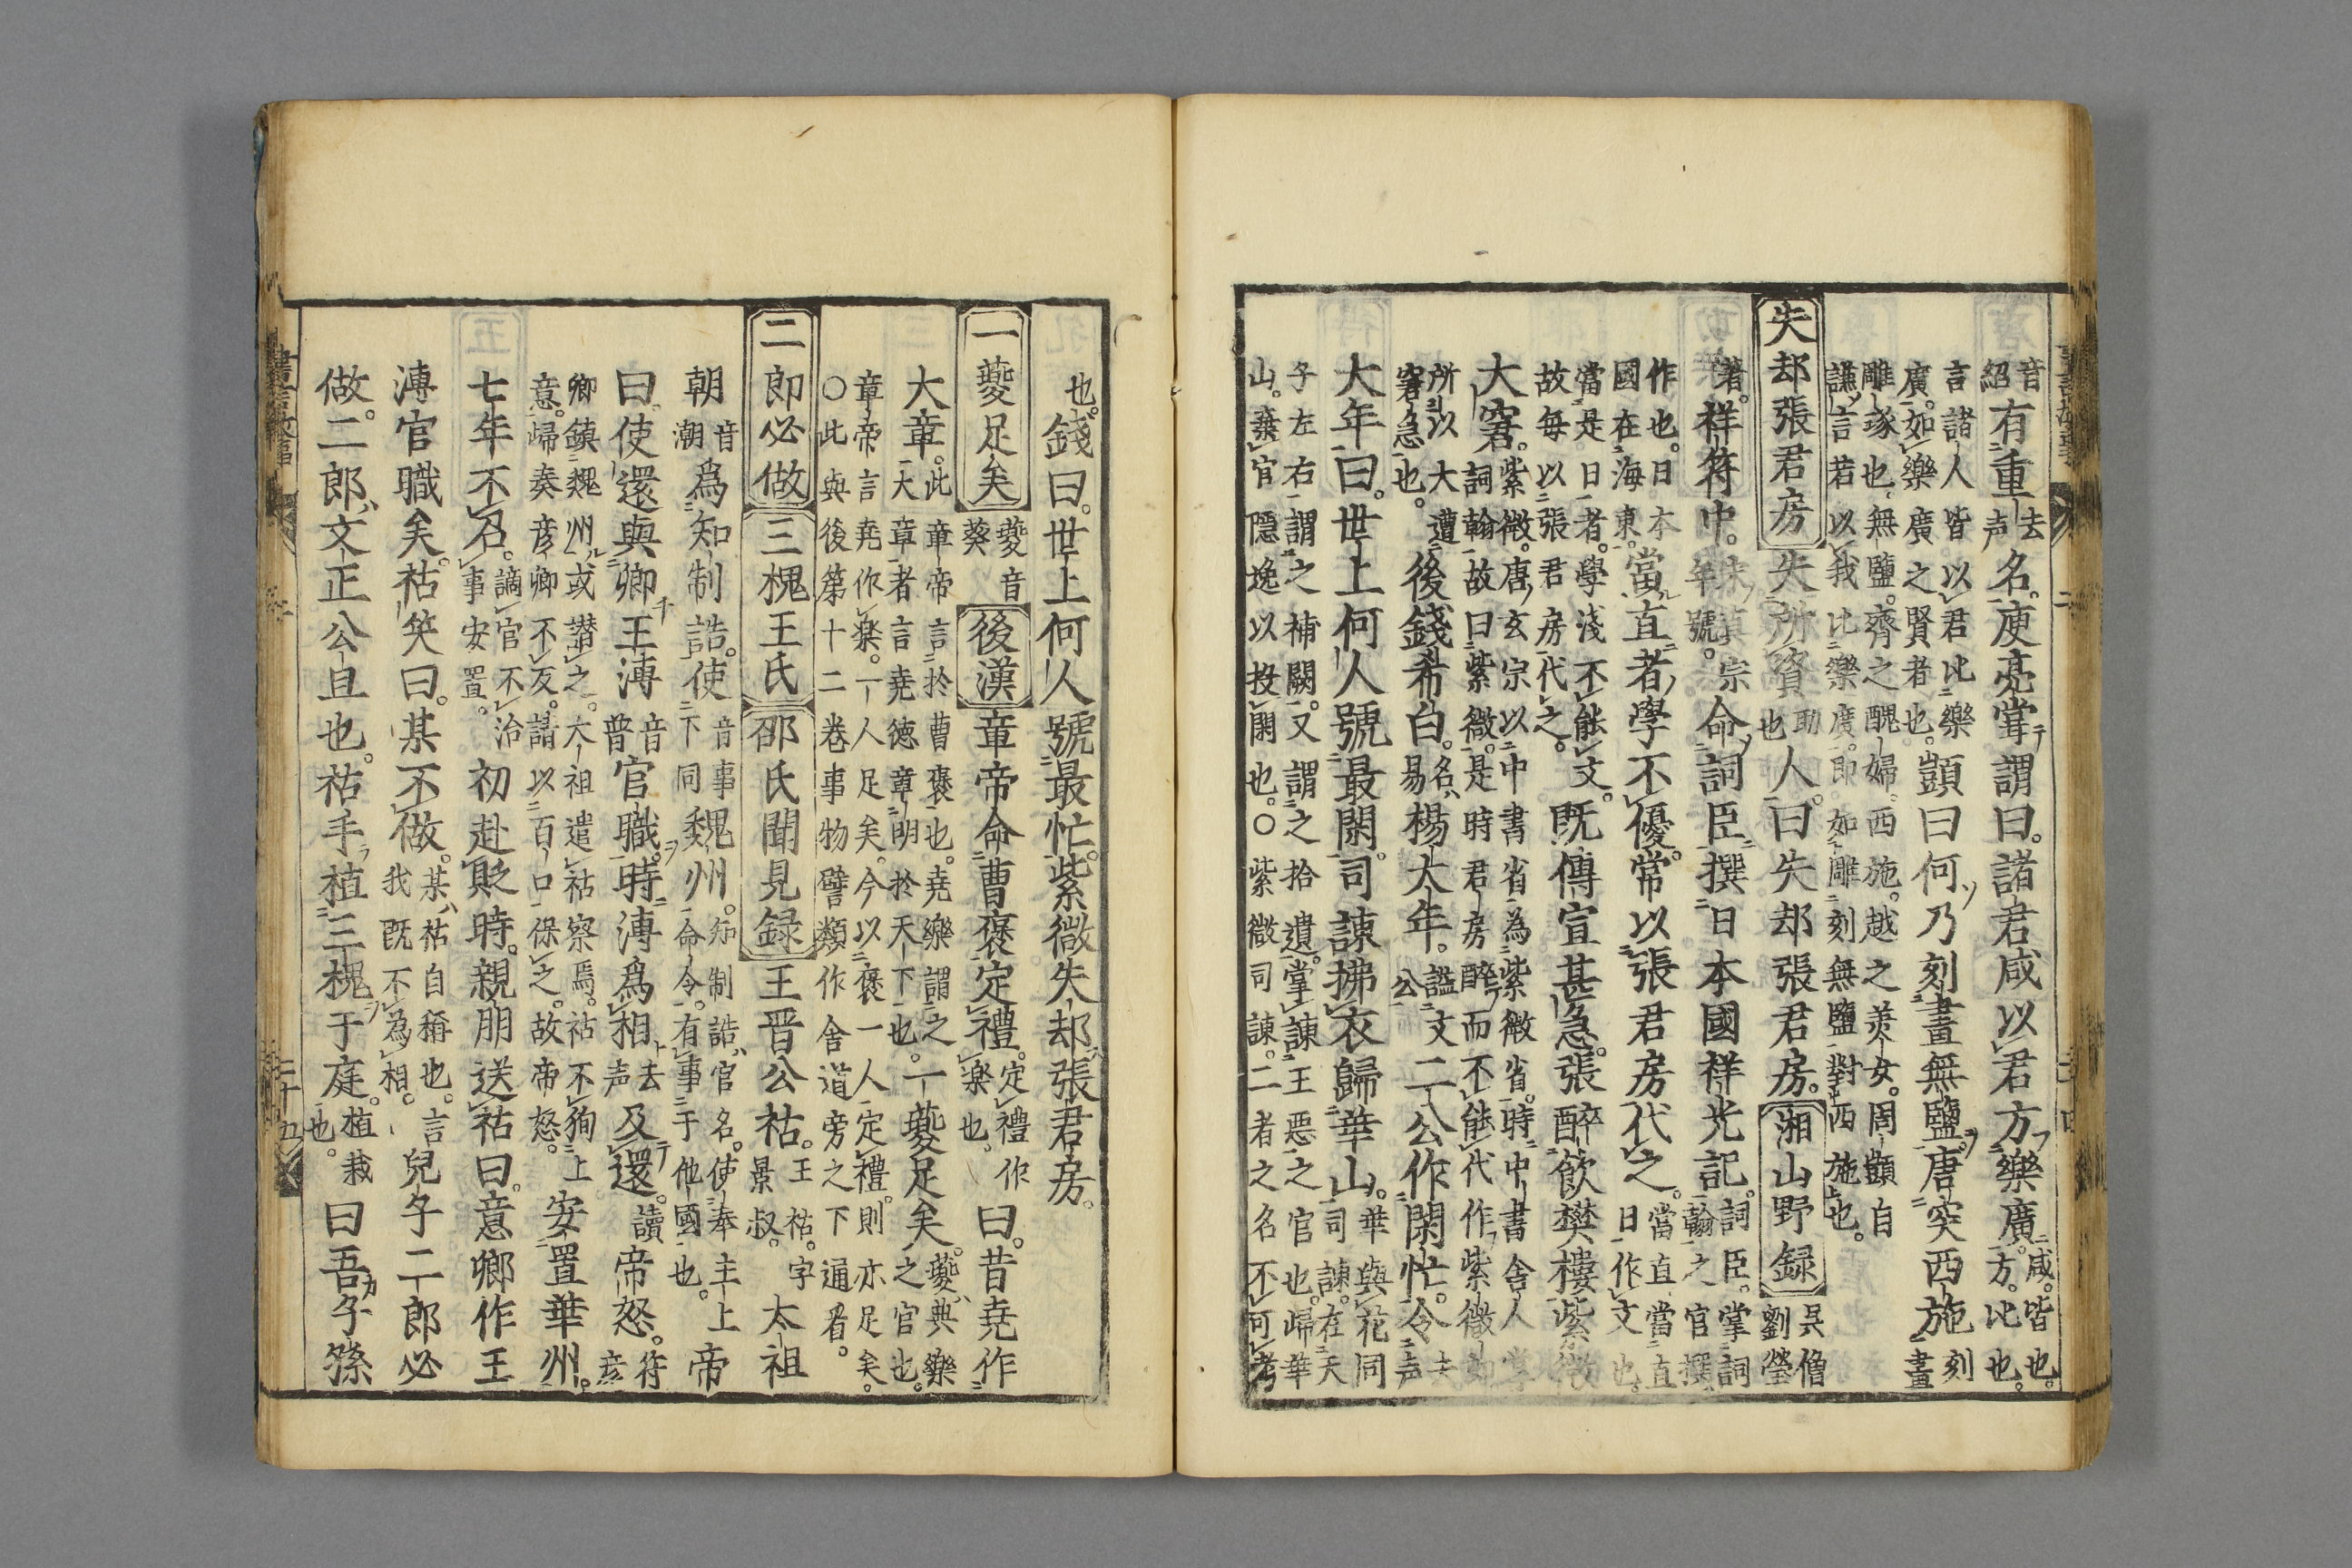 音紹有重去声名。庾亮掌謂曰。諸君咸以君方樂廣。咸。皆也。方。比也。
言諸人皆以君比樂廣。如樂廣之賢者也。顗曰何乃刻畫無鹽。唐突西施。刻畫
雕琢也。無鹽。齊之醜婦。西施。越之美女。周顗自謙言若以我比樂廣。即如雕刻無鹽對西施也。
失却張君房 失所資助也人。曰失却張君房。湘山野録 呉僧劉瑩
著。祥符中。宋真宗年號。命詞臣撰日本國祥光記。詞臣。掌詞翰之官撰
作也。日本國在海東。當直者學不優。常以張君房代之。當直當直日作文也。
當是日者。學淺不能文。故毎以張君房代之。既傳宣甚急。張醉飲樊樓。紫微
大窘。紫微。唐玄宗以中書省為紫微省。時中書舍人掌詞翰。故曰紫微。是時君房醉而不能代作。紫微
所以大遭窘急也。後錢希白。名易楊大年。謚文公二公作閑忙令。去声
大年曰。世上何人號最閑。司諫拂衣歸華山。華與花同司諫。在天
子左右謂之補闕。又謂之拾遺。掌諫王惡之官也。歸華山。棄官隠逸以投閑也。○紫微司諫。二者之名不可考
也。錢曰。世上何人號最忙。紫微失却張君房。
一夔足矣 夔音葵 後漢 章帝命曹褒定禮。定禮作樂也。曰。昔堯作
大章。此章帝言於曹褒也。堯樂謂之大章者言堯德章明於天下也。一夔足矣。夔。典樂之官也。
章帝言堯作樂。一人足矣。今以褒一人定禮。則亦足矣。○此與後第十二卷事物譬類作舍道旁之下通看。
二郎必做 三槐王氏 邵氏聞見録 王晋公祜。王祜。字景叔。太祖
朝音潮為知制誥。使音事下同魏州。知制誥。官名。使奉主上命令。有事于他國也。帝
曰。使還與卿王溥音普官職。時溥為相去声及還。讀帝怒。符彦
卿鎮魏州。或譖之。太祖遣祜察焉。祜不狥上意。歸奏彦卿不反。請以百口保之。故帝怒。安置華州。
七年不召。謫官不治事安置。初赴貶時。親朋送祜曰。意卿作王
溥官職矣。祜笑曰。某不做。某。祜自稱也。言我既不為相。兒子二郎必
做。二郎。文正公旦也。祜手植三槐于庭。植栽也。曰吾子孫